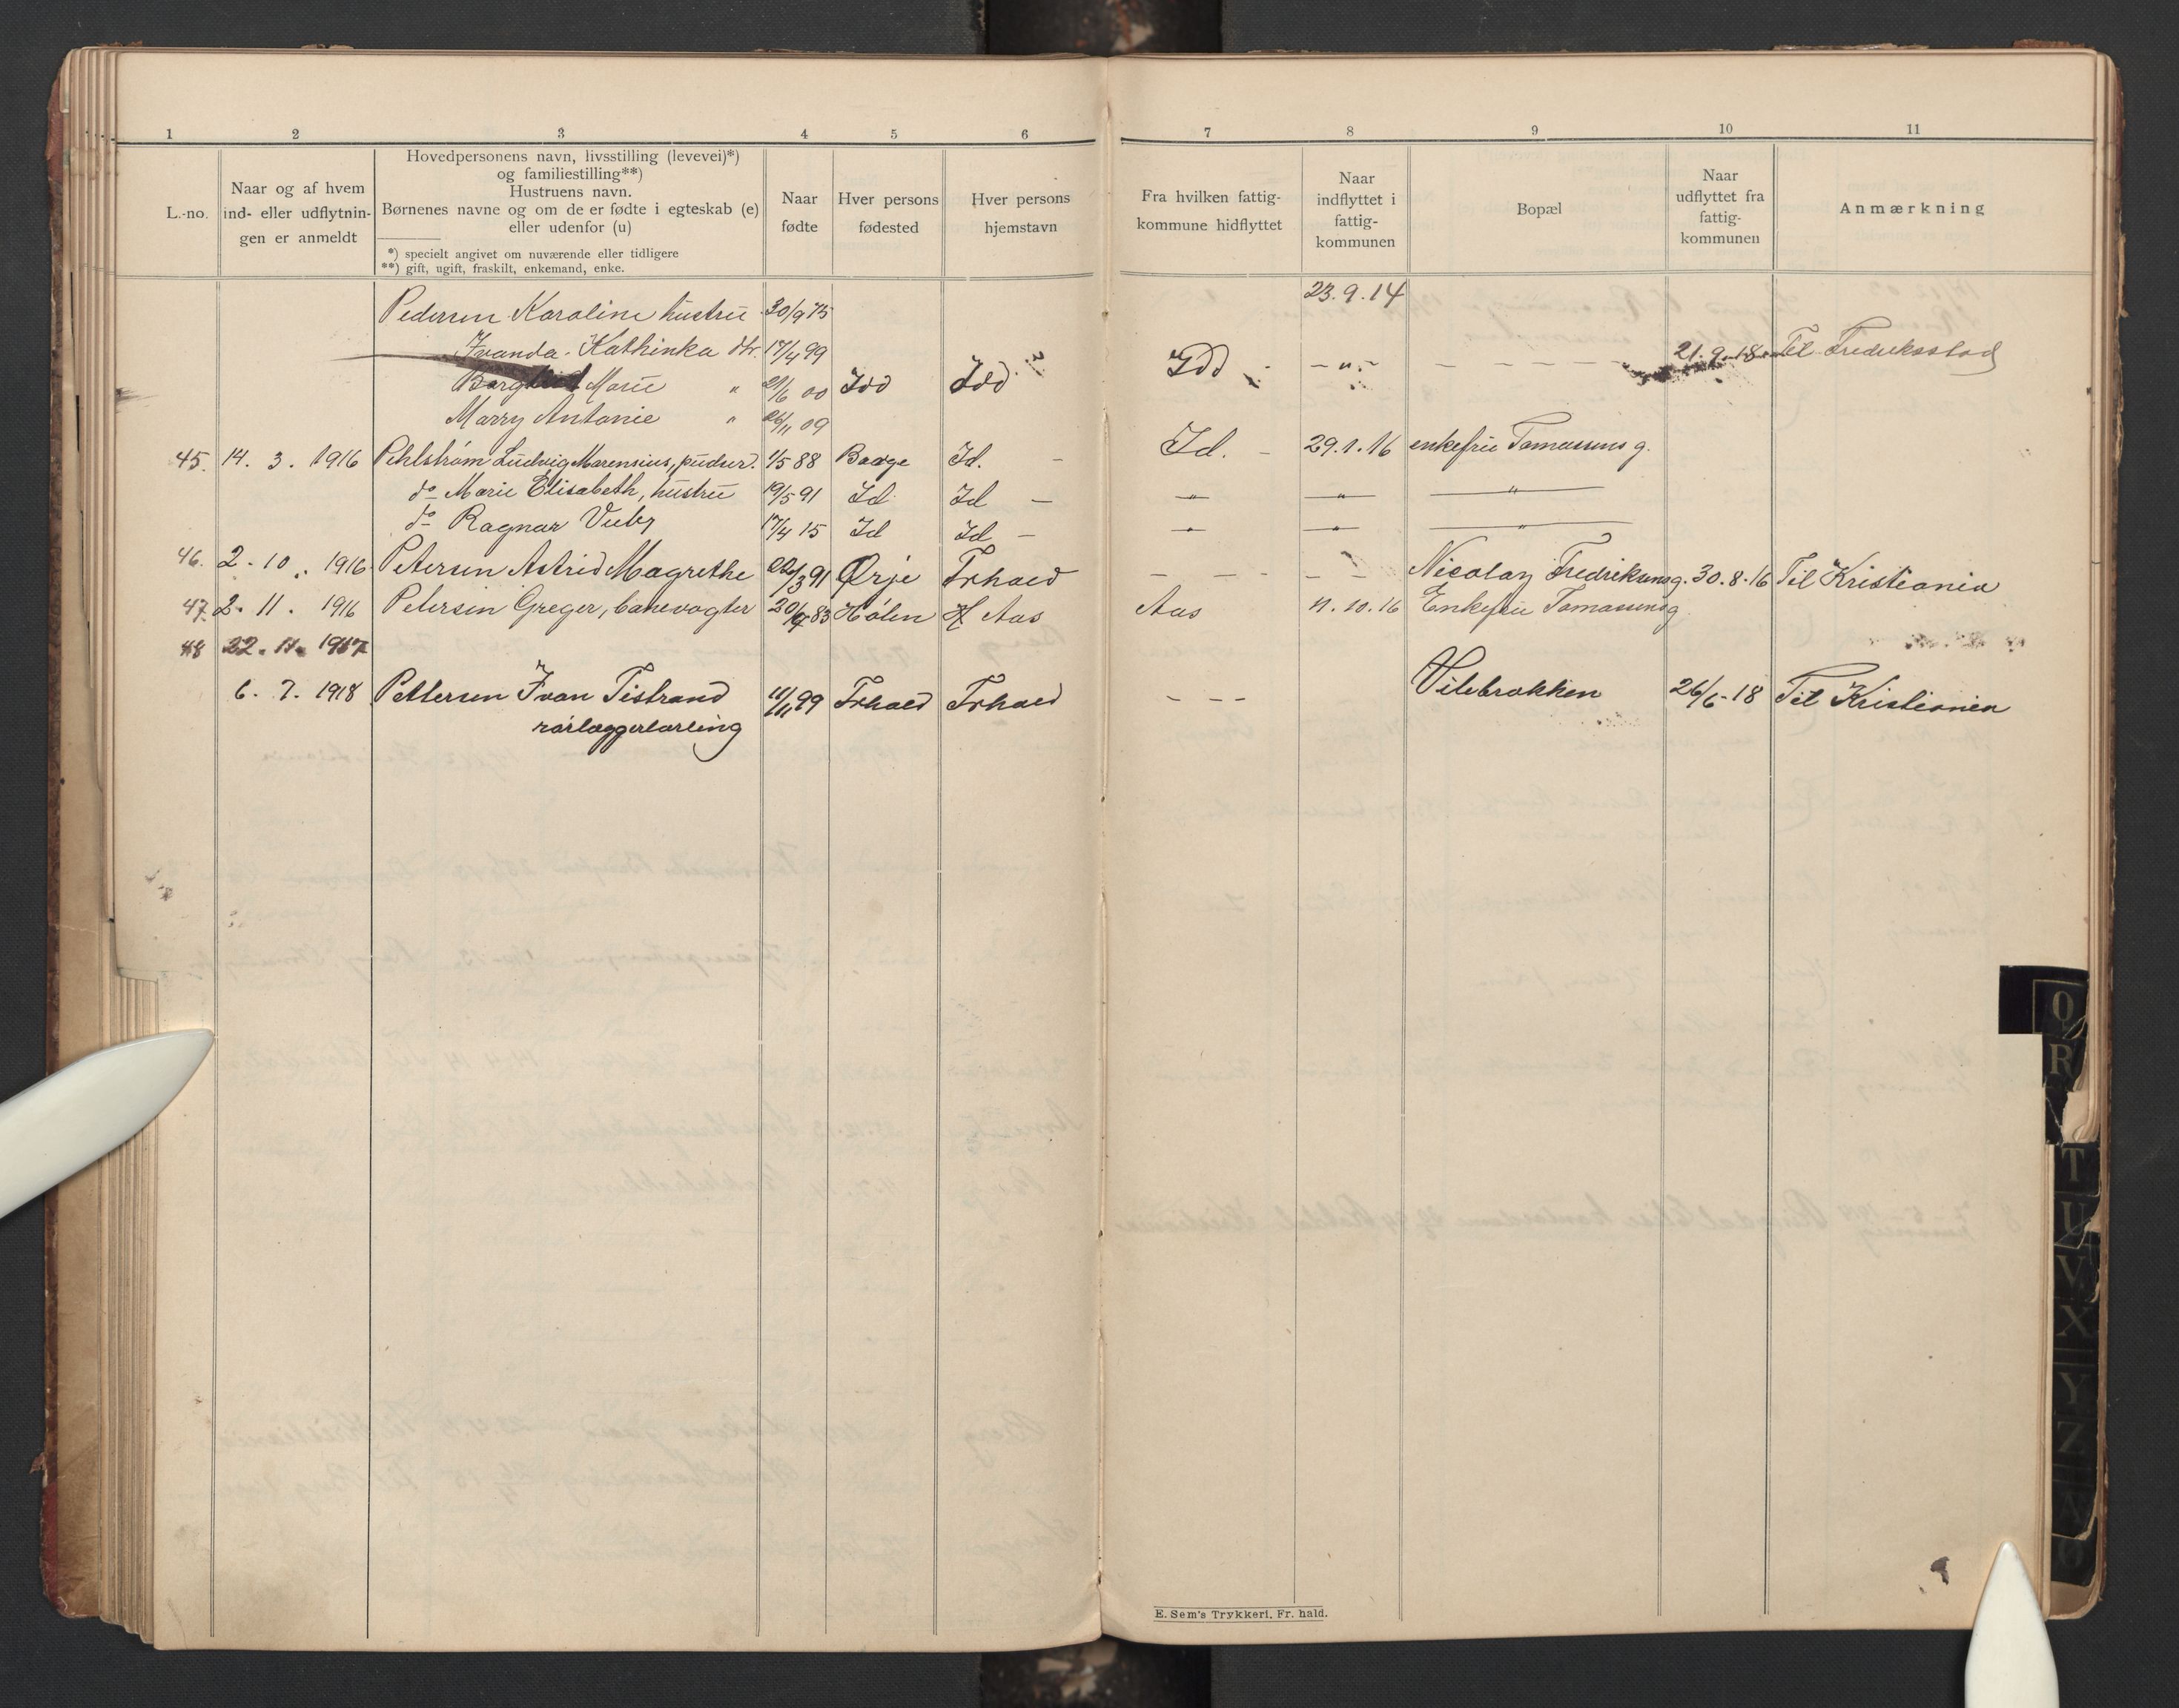 1 2 3 4 5 6 7 8 9 10 11
L.-no.
Naar og af hvem
ind- eller udflytnin-
gen er anmeldt
Hovedpersonens navn, livsstilling (levevei)*)
og familiestilling**)
Hustruens navn.
Børnenes navne og om de er fødte i egteskab (e)
eller udenfor (u)
*) specielt angivet om nuværende eller tidligere
**) gift, ugift, fraskilt, enkemand, enke.
Naar
fødte
Hver persons
fødested
Hver persons
hjemstavn
Fra hvilken fattig-
kommune hidflyttet
Naar
indflyttet i
fattig-
kommunen
Bopæl
Naar
udflyttet fra
fattig-
kommunen
Anmærkning
Pedersen Karoline hustru 30/9 75 23.9.14
Ivanda Kathinka dtr. 17/4 99 Idd - „ - 21.9.18 Til Fredriksstad
Marie „ 21/6 00 Idd Idd
Marry Antonie „ 26/11 09
45. 14. 3. 1916 Pehlstrøm Ludvig Marensius, pudser. 1/5 88 Id. - Id. - 29.1.16 enkefru Tomassens g.
do Marie Elisabeth, hustru 19/5 91 Id Id - „ „ „
do Ragnar 17/4 15 Id Id - „ „ „
46. 2. 10. 1916 Petersen Astrid Magrethe 22/3 91 Ørje Frhald - - - - - Nicolay Fredriksens g. 30.8.16 Til Kristiania
47. 2. 11. 1916 Petersen Greger, banevogter 20/9 83 Hølen Aas Aas 11.10.16 Enkefru Tomassens g
48 22. 11. 1917
6. 7. 1918 Pettersen Ivan Tistrand 11/11 99 Frhald Frhald - - - Vilebrokken 26/6-18 Til Kristiania
rørlæggerlærling
E. Sem's Trykkeri, Fr. hald.
Q
R
T
U
V
X
Y
Z